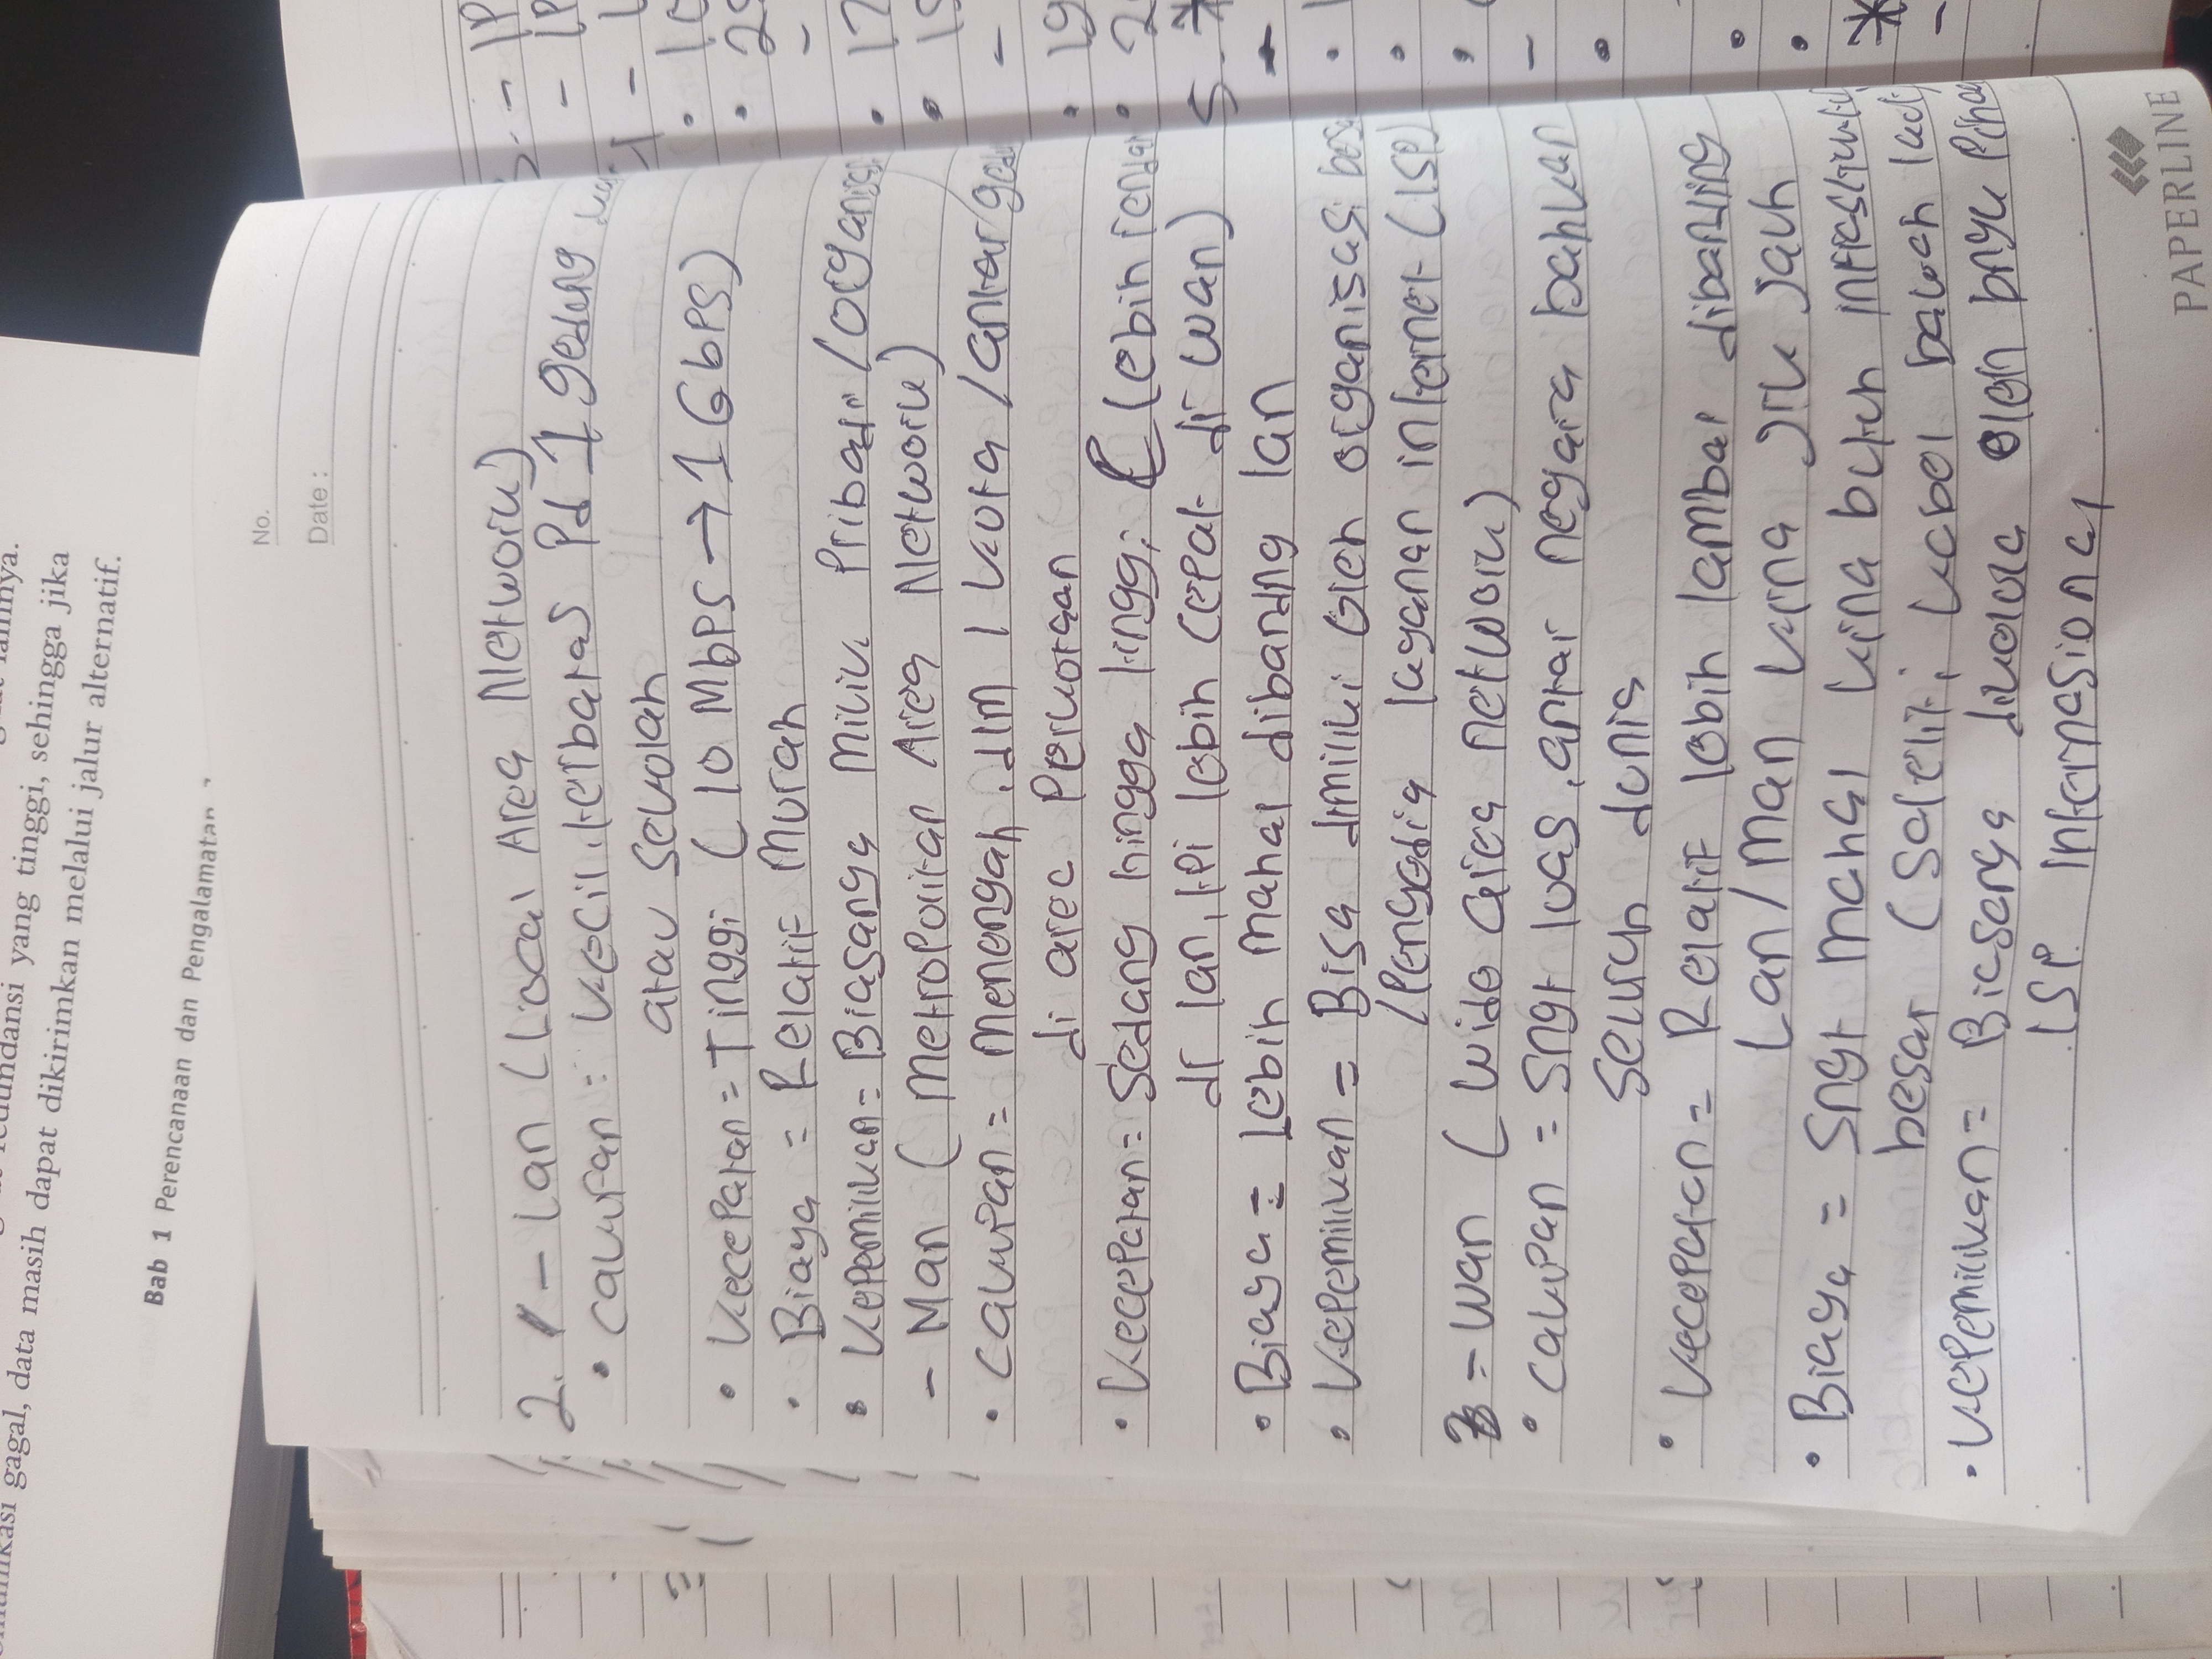 redundansi yang tinggi, sehingga jika
gagal, data masih dapat dikirimkan melalui jalur alternatif.
Bab 1 Perencanaan dan Pengalamatan
No.
Date :
2. - Lan (Local Area Network)
• cakupan = kecil, terbatas Pd 1 gedung
atau sekolah
• kecepatan = Tinggi (10 Mbps → 1 Gbps)
• Biaya = Relatif murah
• kepemilikan = Biasanya milik Pribadi /organisasi
- Man (Metropolitan Area Network)
• cakupan = menengah, dlm 1 kota /antar
di area Perkotaan
• kecepatan = sedang hingga tinggi (lebih
dr lan, tpi lebih cepat dr wan)
• Biaya = lebih mahal dibandng lan
• kepemilikan = Bisa dimiliki oleh organisasi
/Penyedia layanan internet (ISP)
- wan (wide area network)
• cakupan = sngt luas, antar negara bahkan
seluruh dunia
• kecepatan = Relatif lebih lambat dibanding
Lan/man krna jrk jauh
• Biaya = sngt mahal krna butuh
besar (satelit, kabel bawah laut)
• kepemilikan = Biasanya dikelola oleh bnyk
ISP internasional
PAPERLINE